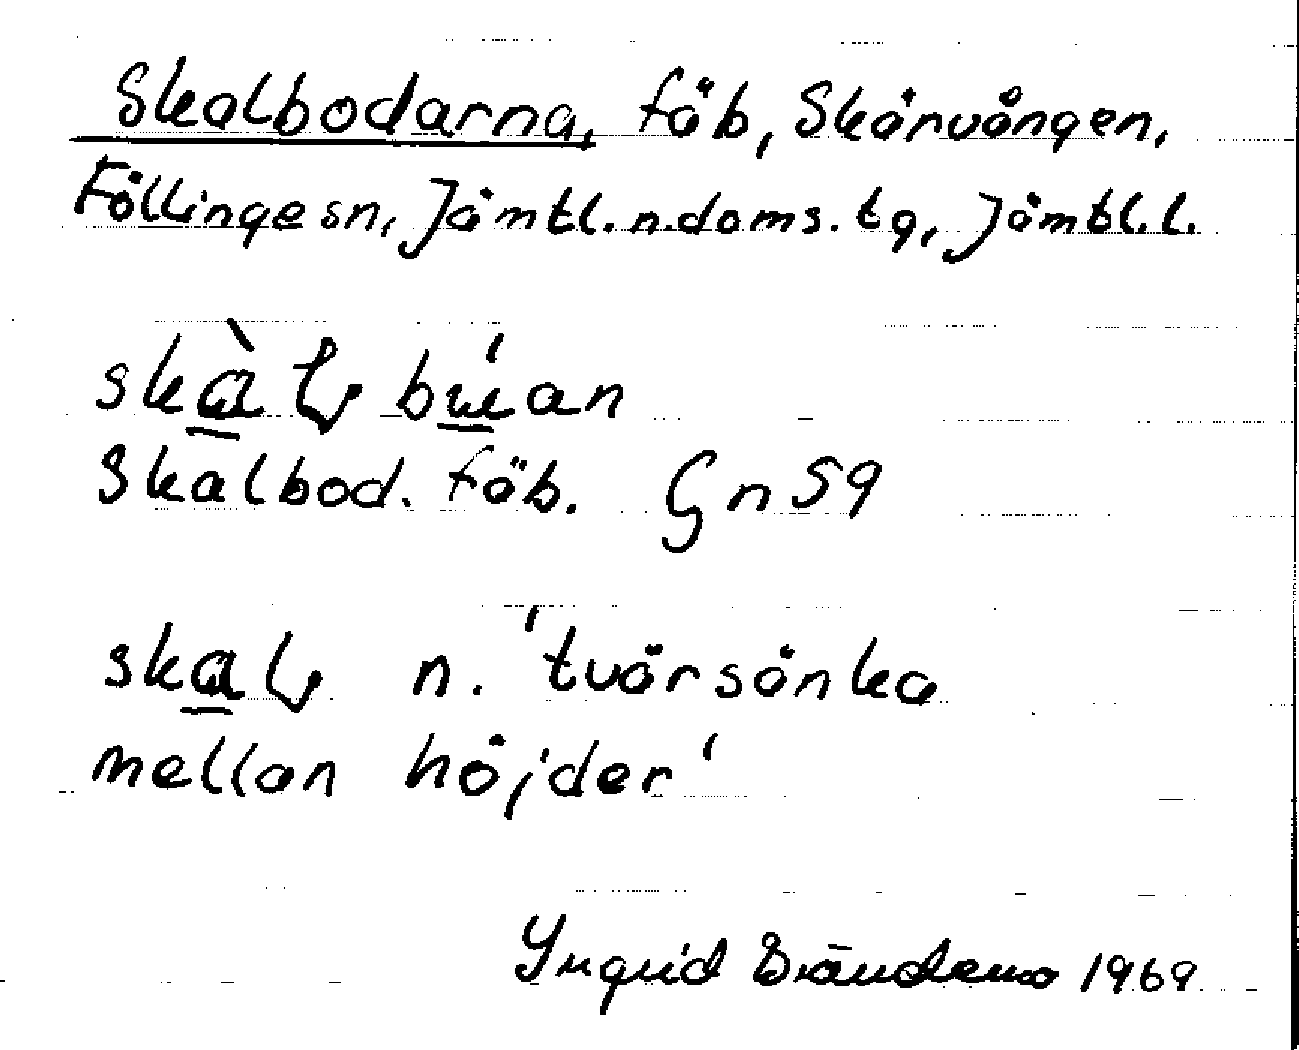 Skalbodarna, fäb, Skärvången,
Föllinge sn, Jämtl. n. doms. tg, Jämtl. l.
Skalbod. fäb. Gn 59
n. 'tvärsänka
mellan höjder'
Ingrid Brändemo 1969